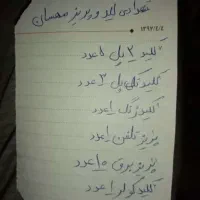 تعداد کلید و پریز مهمان
۱۳۹۳/۴/۴
کلید ۲ پل ۵ عدد
کلید تک پل ۳ عدد
کلید زنگ ۱ عدد
پریز تلفن ۱ عدد
پریز برق ۱۰ عدد
کلید کولر ۱ عدد